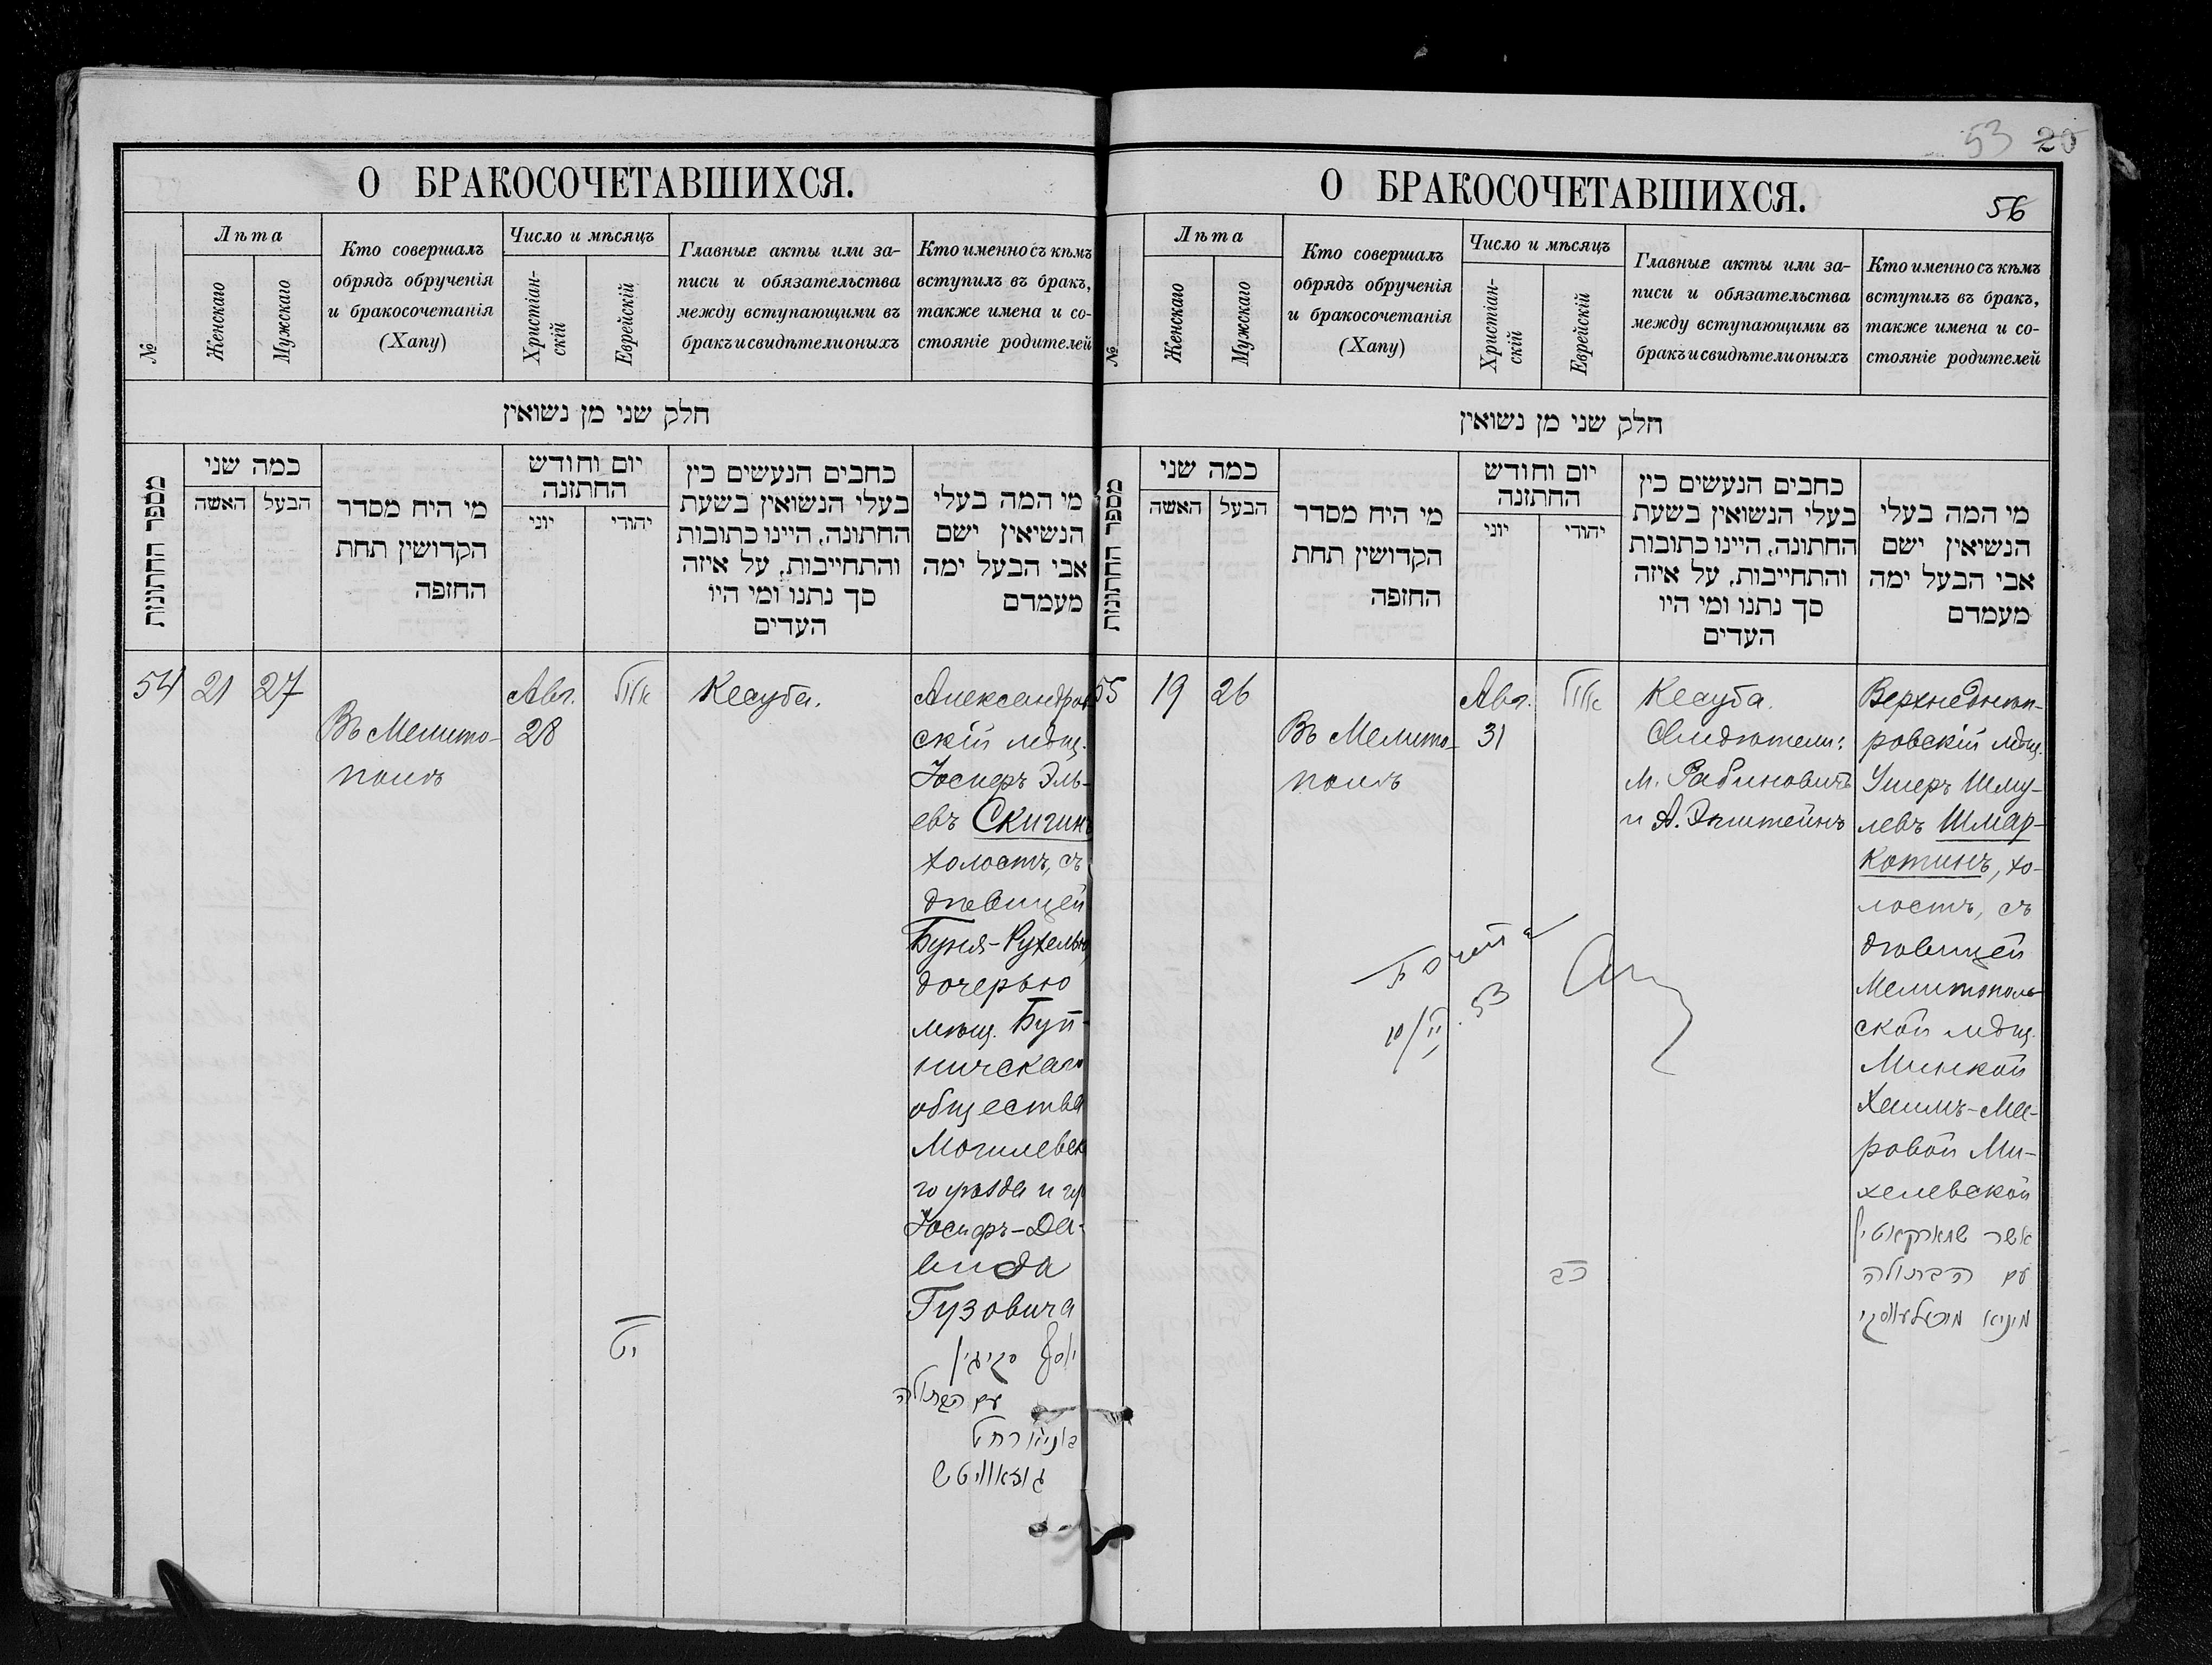 53 20
О БРАКОСОЧЕТАВШИХСЯ.
№
Лѣта
Женскаго
Мужскаго
Кто совершалъ
обрядъ обрученія
и бракосочетанія
(Хапу)
Число и мѣсяцъ
Христіан-
скій
Еврейскій
Главные акты или за-
писи и обязательства
между вступающими въ
бракъ и свидѣтели оныхъ
Кто именно съ кѣмъ
вступилъ въ бракъ,
также имена и со-
стояніе родителей
חלק שני מן נשואין
מספר החתונות
כמה שני
האשה
הבעל
מי היח מסדר
הקדושין תחת
החזפה
יום וחודש
החתזנה
יוני
יהודי
כחבים הנעשים כין
בעלי הנשואין בשעת
החתונה, היינו כתובות
והתחייבות, על איזה
סך נתנו ומי היו
העדים
מי המה בעלי
הנשיאין ישם
אבי הבעל ימה
מעמדם
54
21
27
Въ Мелито-
полѣ
Авг.
28
אלול
יט
Кесуба.
Александров
скій мѣщ.
Іосифъ Эль-
евъ Скигинъ
холостъ, съ
дѣвицей
Буня-Рухелью,
дочерью
мѣщ. Буй-
ничскаго
общества
Могилевск
го уѣзда и гу
Іосифъ-Да-
вида
Гузовича
יוסף סקיגין
עם הבתולה
בוניא רחל
גוזאוויטש
О БРАКОСОЧЕТАВШИХСЯ.
56
№
Лѣта
Женскаго
Мужскаго
Кто совершалъ
обрядъ обрученія
и бракосочетанія
(Хапу)
Число и мѣсяцъ
Христіан-
скій
Еврейскій
Главные акты или за-
писи и обязательства
между вступающими въ
бракъ и свидѣтели оныхъ
Кто именно съ кѣмъ
вступилъ въ бракъ,
также имена и со-
стояніе родителей
חלק שני מן נשואין
מספר החתונות
כמה שני
האשה
הבעל
מי היח מסדר
הקדושין תחת
החזפה
יום וחודש
החתזנה
יוני
יהודי
כחבים הנעשים כין
בעלי הנשואין בשעת
החתונה, היינו כתובות
והתחייבות, על איזה
סך נתנו ומי היו
העדים
מי המה בעלי
הנשיאין ישם
אבי הבעל ימה
מעמדם
55
19
26
Въ Мелито-
полѣ
Авг.
31
אלול
כב
Кесуба.
Свидѣтели:
М. Рабиновичъ
и А. Эпштейнъ
10/II. 53
Верхнеднѣп-
ровскій мѣщ.
Ушеръ Шму-
левъ Шмар-
котинъ, хо-
лостъ, съ
дѣвицей
Мелитополь-
ской мѣщ.
Минкой
Хаимъ-Ме-
ровой Ми-
хелевской
אשר שמארקאטין
עם הבתולה